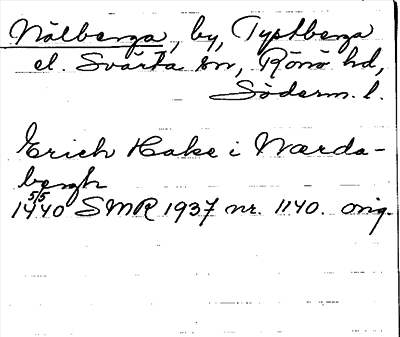 Nälberga, by, Tystberga
el. Svärta sn, Rönö hd,
Söderm. l.
Erich Hake i Nærda-
bergh
1440 5/5 SMR 1937 nr. 1140. orig.